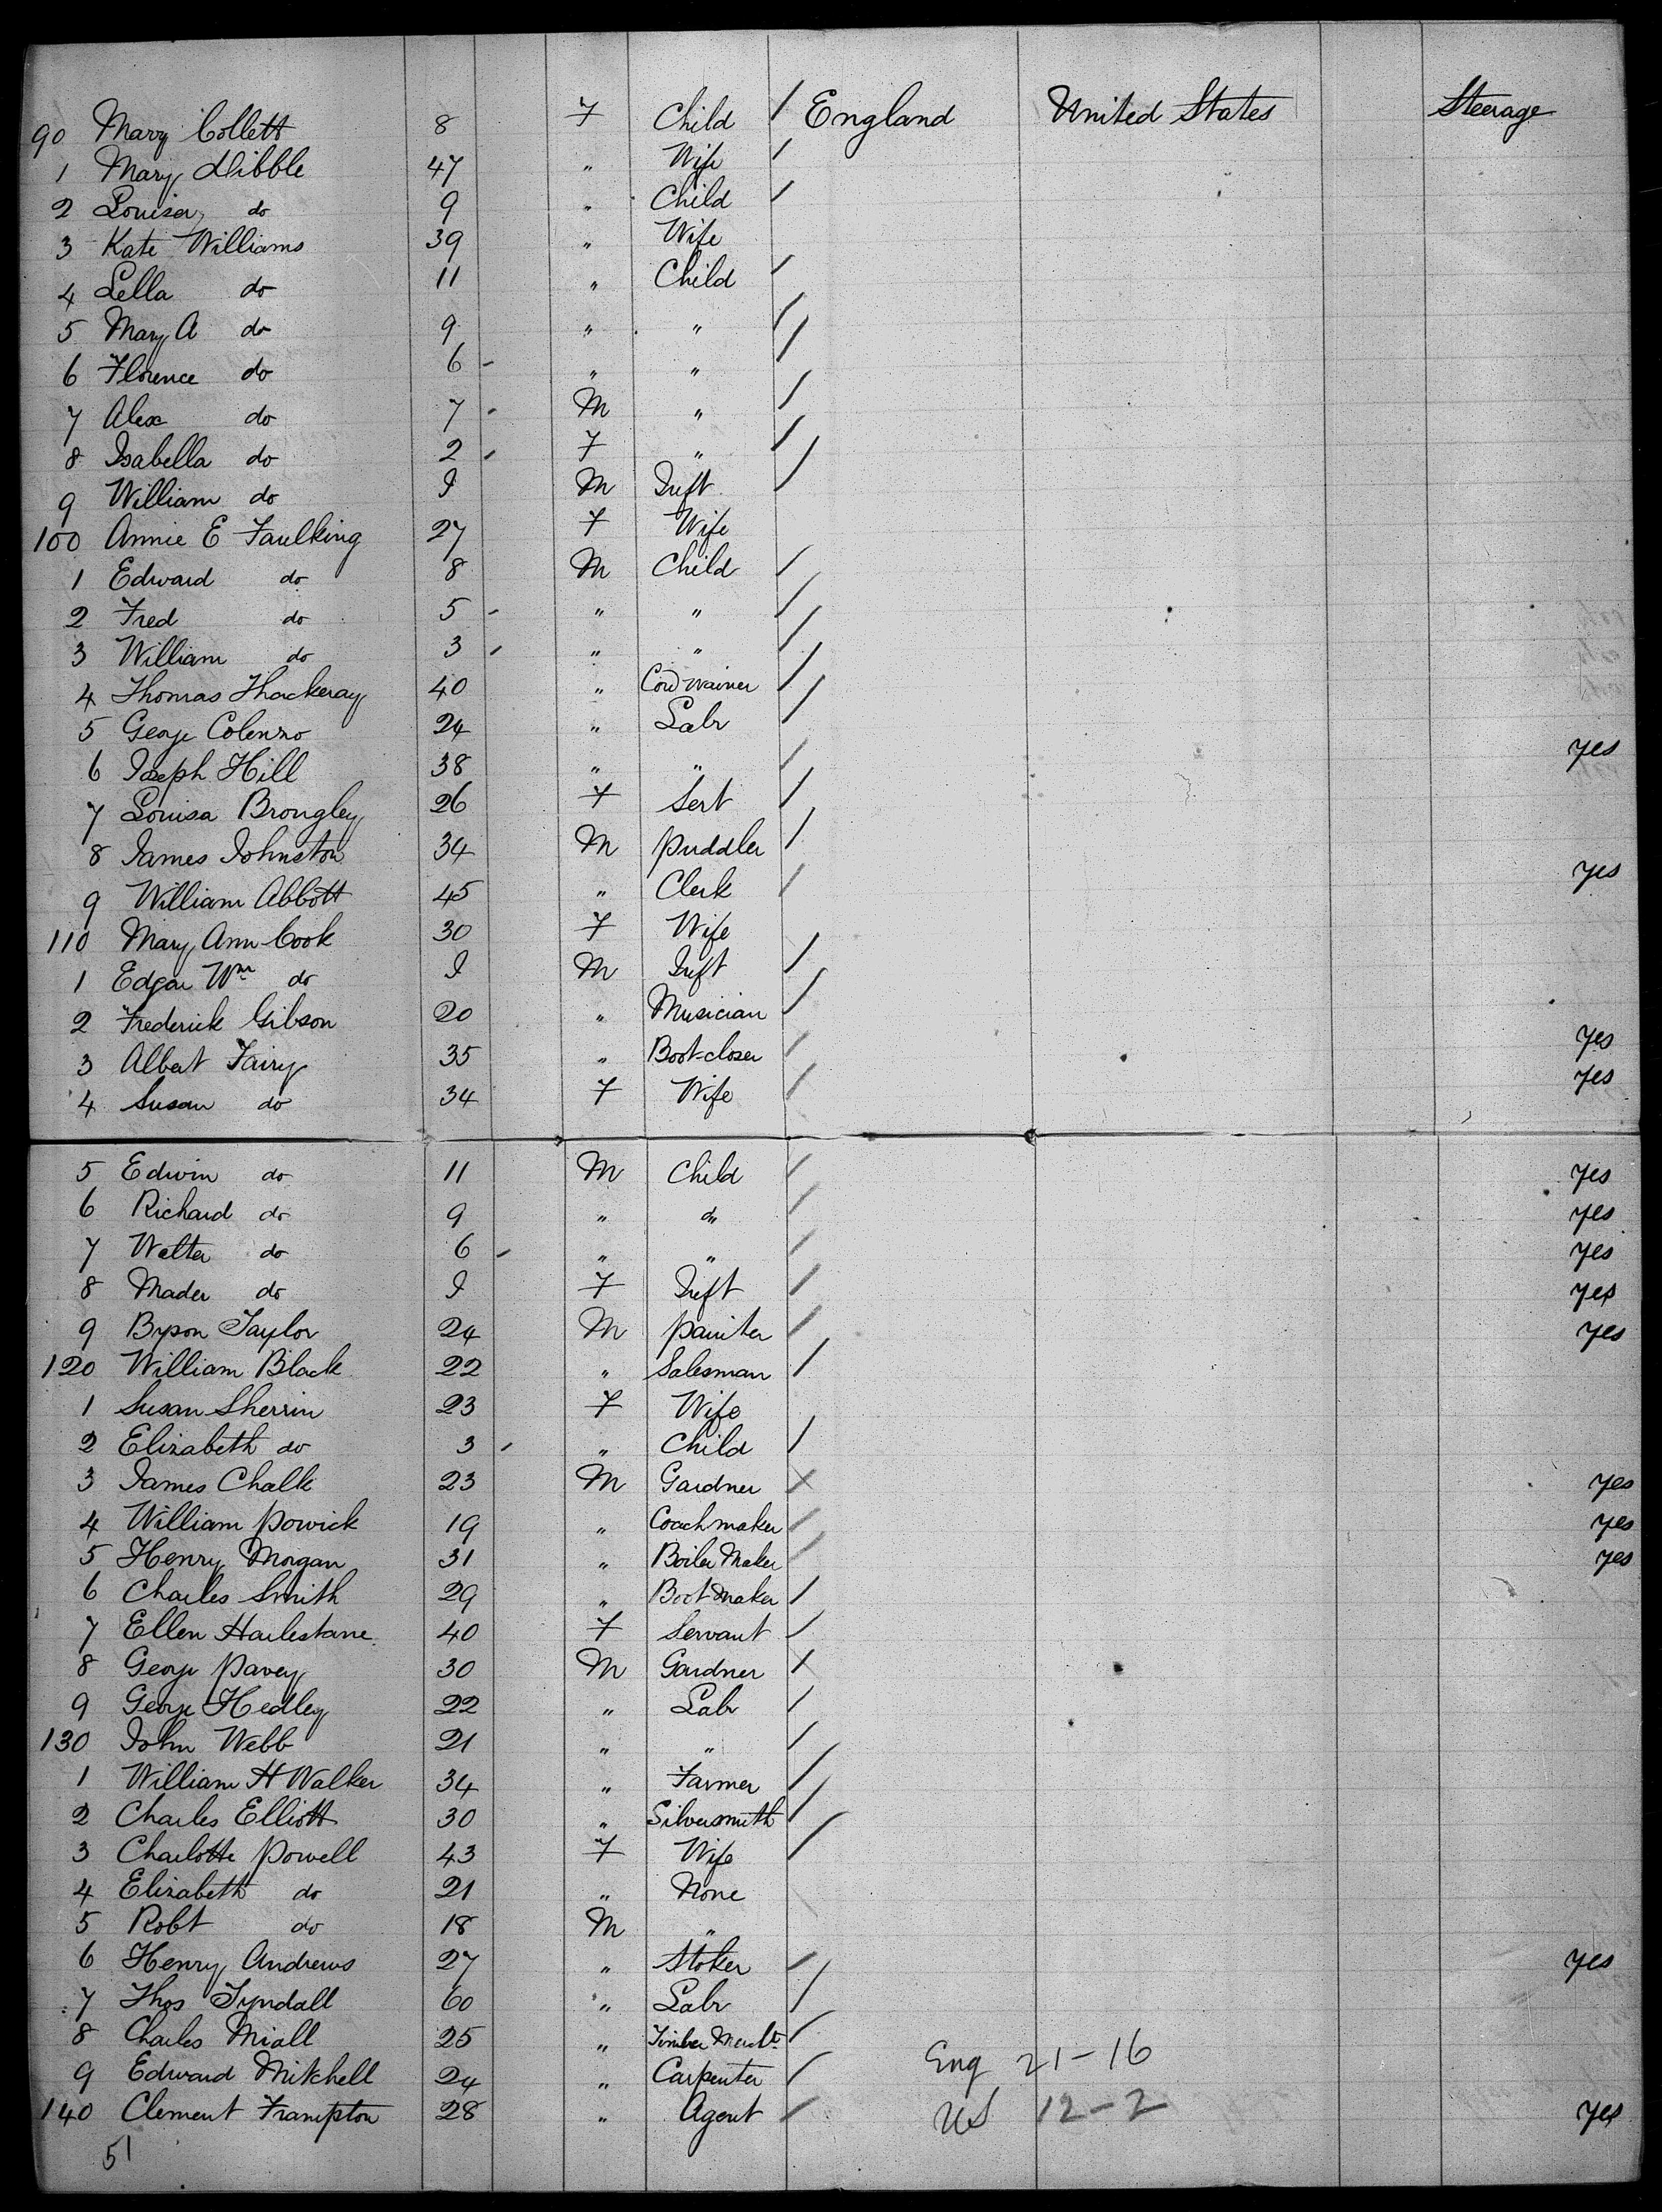 90 Mary Collett 8 F Child / England United States Steerage
1 Mary Dibble 47 " Wife /
2 Louisa do 9 " Child /
3 Kate Williams 39 " Wife
4 Lella do 11 " Child /
5 Mary A do 9 " " /
6 Florence do 6 - " " /
7 Alex do 7 - M " /
8 Isabella do 2 - F " /
9 William do I M Inft /
100 Annie E Faulking 27 F Wife
1 Edward do 8 M Child /
2 Fred do 5 - " " /
3 William do 3 - " " /
4 Thomas Thackeray 40 " Cordwainer /
5 George Colenzo 24 " Labr /
6 Joseph Hill 38 " " / yes
7 Louisa Brongley 26 F Sert /
8 James Johnston 34 M Puddler /
9 William Abbott 45 " Clerk / yes
110 Mary Ann Cook 30 F Wife
1 Edgar Wm do I M Inft /
2 Frederick Gibson 20 " Musician /
3 Albert Fairy 35 " Boot-closer / yes
4 Susan do 34 F Wife / yes
5 Edwin do 11 M Child / yes
6 Richard do 9 " do / yes
7 Walter do 6 - " " / yes
8 Mader do I F Inft / yes
9 Byson Taylor 24 M Painter / yes
120 William Black 22 " Salesman /
1 Susan Sherrin 23 F Wife
2 Elizabeth do 3 - " Child /
3 James Chalk 23 M Gardner X yes
4 William Powick 19 " Coachmaker / yes
5 Henry Morgan 31 " Boiler Maker / yes
6 Charles Smith 29 " Boot Maker /
7 Ellen 40 F Servant /
8 George Pavey 30 M Gardner X
9 George Hedley 22 " Labr /
130 John Webb 21 " " /
1 William H Walker 34 " Farmer /
2 Charles Elliott 30 " Silversmith /
3 Charlotte Powell 43 F Wife /
4 Elizabeth do 21 " None
5 Robt do 18 M "
6 Henry Andrews 27 " Stoker / yes
7 Thos Tyndall 60 " Labr /
8 Charles Miall 25 " Timber Mercht /
9 Edward Mitchell 24 " Carpenter / Eng 21-16
140 Clement Frampton 28 " Agent / US 12-2 yes
51